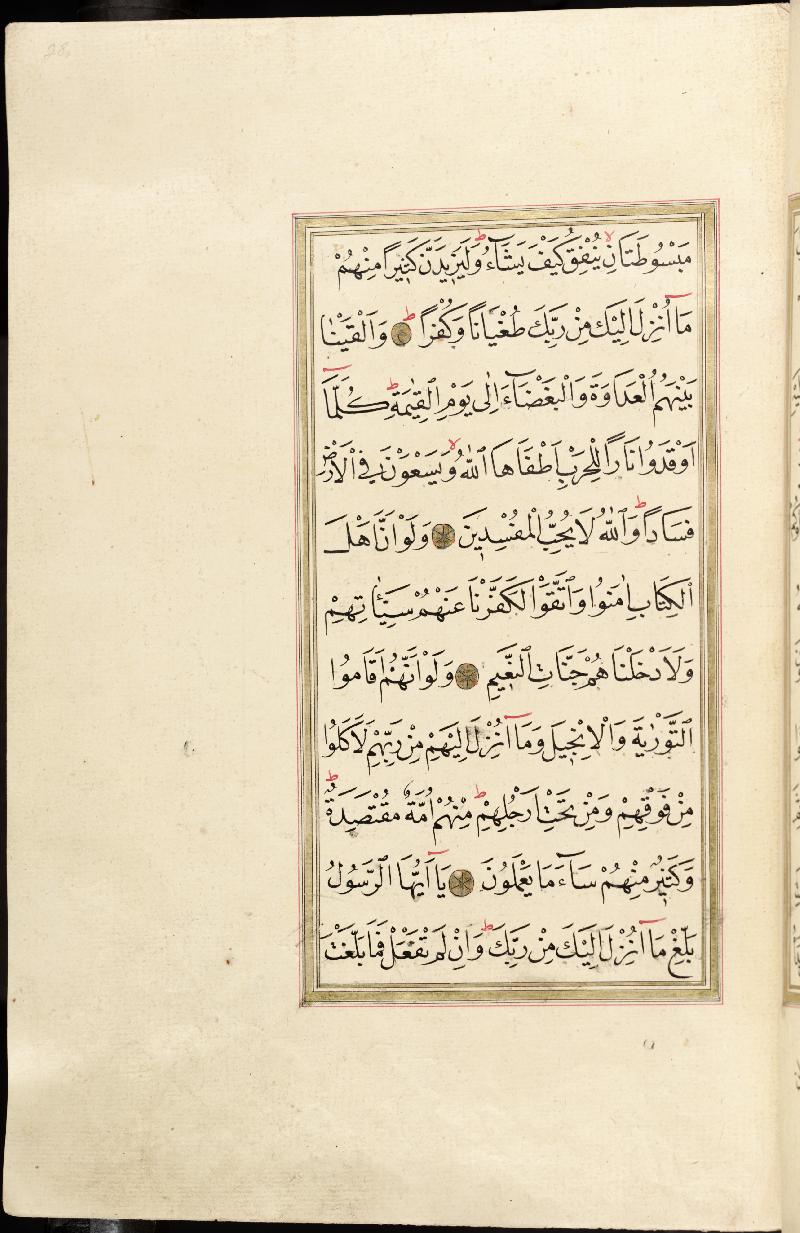 مَبْسُوطَتَانِ يُنْفِقُ كَيْفَ يَشَٓاءُ وَلَيَزِيدَنَّ كَثِيرًا مِنْهُمْ
مَٓا اُنْزِلَ اِلَيْكَ مِنْ رَبِّكَ طُغْيَانًا وَكُفْرًا وَاَلْقَيْنَا
بَيْنَهُمُ الْعَدَاوَةَ وَالْبَغْضَٓاءَ اِلٰى يَوْمِ الْقِيٰمَةِ كُلَّمَٓا
اَوْقَدُوا نَارًا لِلْحَرْبِ اَطْفَاَهَا اللّٰهُ وَيَسْعَوْنَ فِي الْاَرْضِ
فَسَادًا وَاللّٰهُ لَا يُحِبُّ الْمُفْسِدِينَ وَلَوْ اَنَّ اَهْلَ
الْكِتَابِ اٰمَنُوا وَاتَّقَوْا لَكَفَّرْنَا عَنْهُمْ سَيِّـَٔاتِهِمْ
وَلَاَدْخَلْنَاهُمْ جَنَّاتِ النَّعِيمِ وَلَوْ اَنَّهُمْ اَقَامُوا
التَّوْرٰيةَ وَالْاِنْجِيلَ وَمَٓا اُنْزِلَ اِلَيْهِمْ مِنْ رَبِّهِمْ لَاَكَلُوا
مِنْ فَوْقِهِمْ وَمِنْ تَحْتِ اَرْجُلِهِمْ مِنْهُمْ اُمَّةٌ مُقْتَصِدَةٌ
وَكَثِيرٌ مِنْهُمْ سَٓاءَ مَا يَعْمَلُونَ يَٓا اَيُّهَا الرَّسُولُ
بَلِّغْ مَٓا اُنْزِلَ اِلَيْكَ مِنْ رَبِّكَ وَاِنْ لَمْ تَفْعَلْ فَمَا بَلَّغْتَ